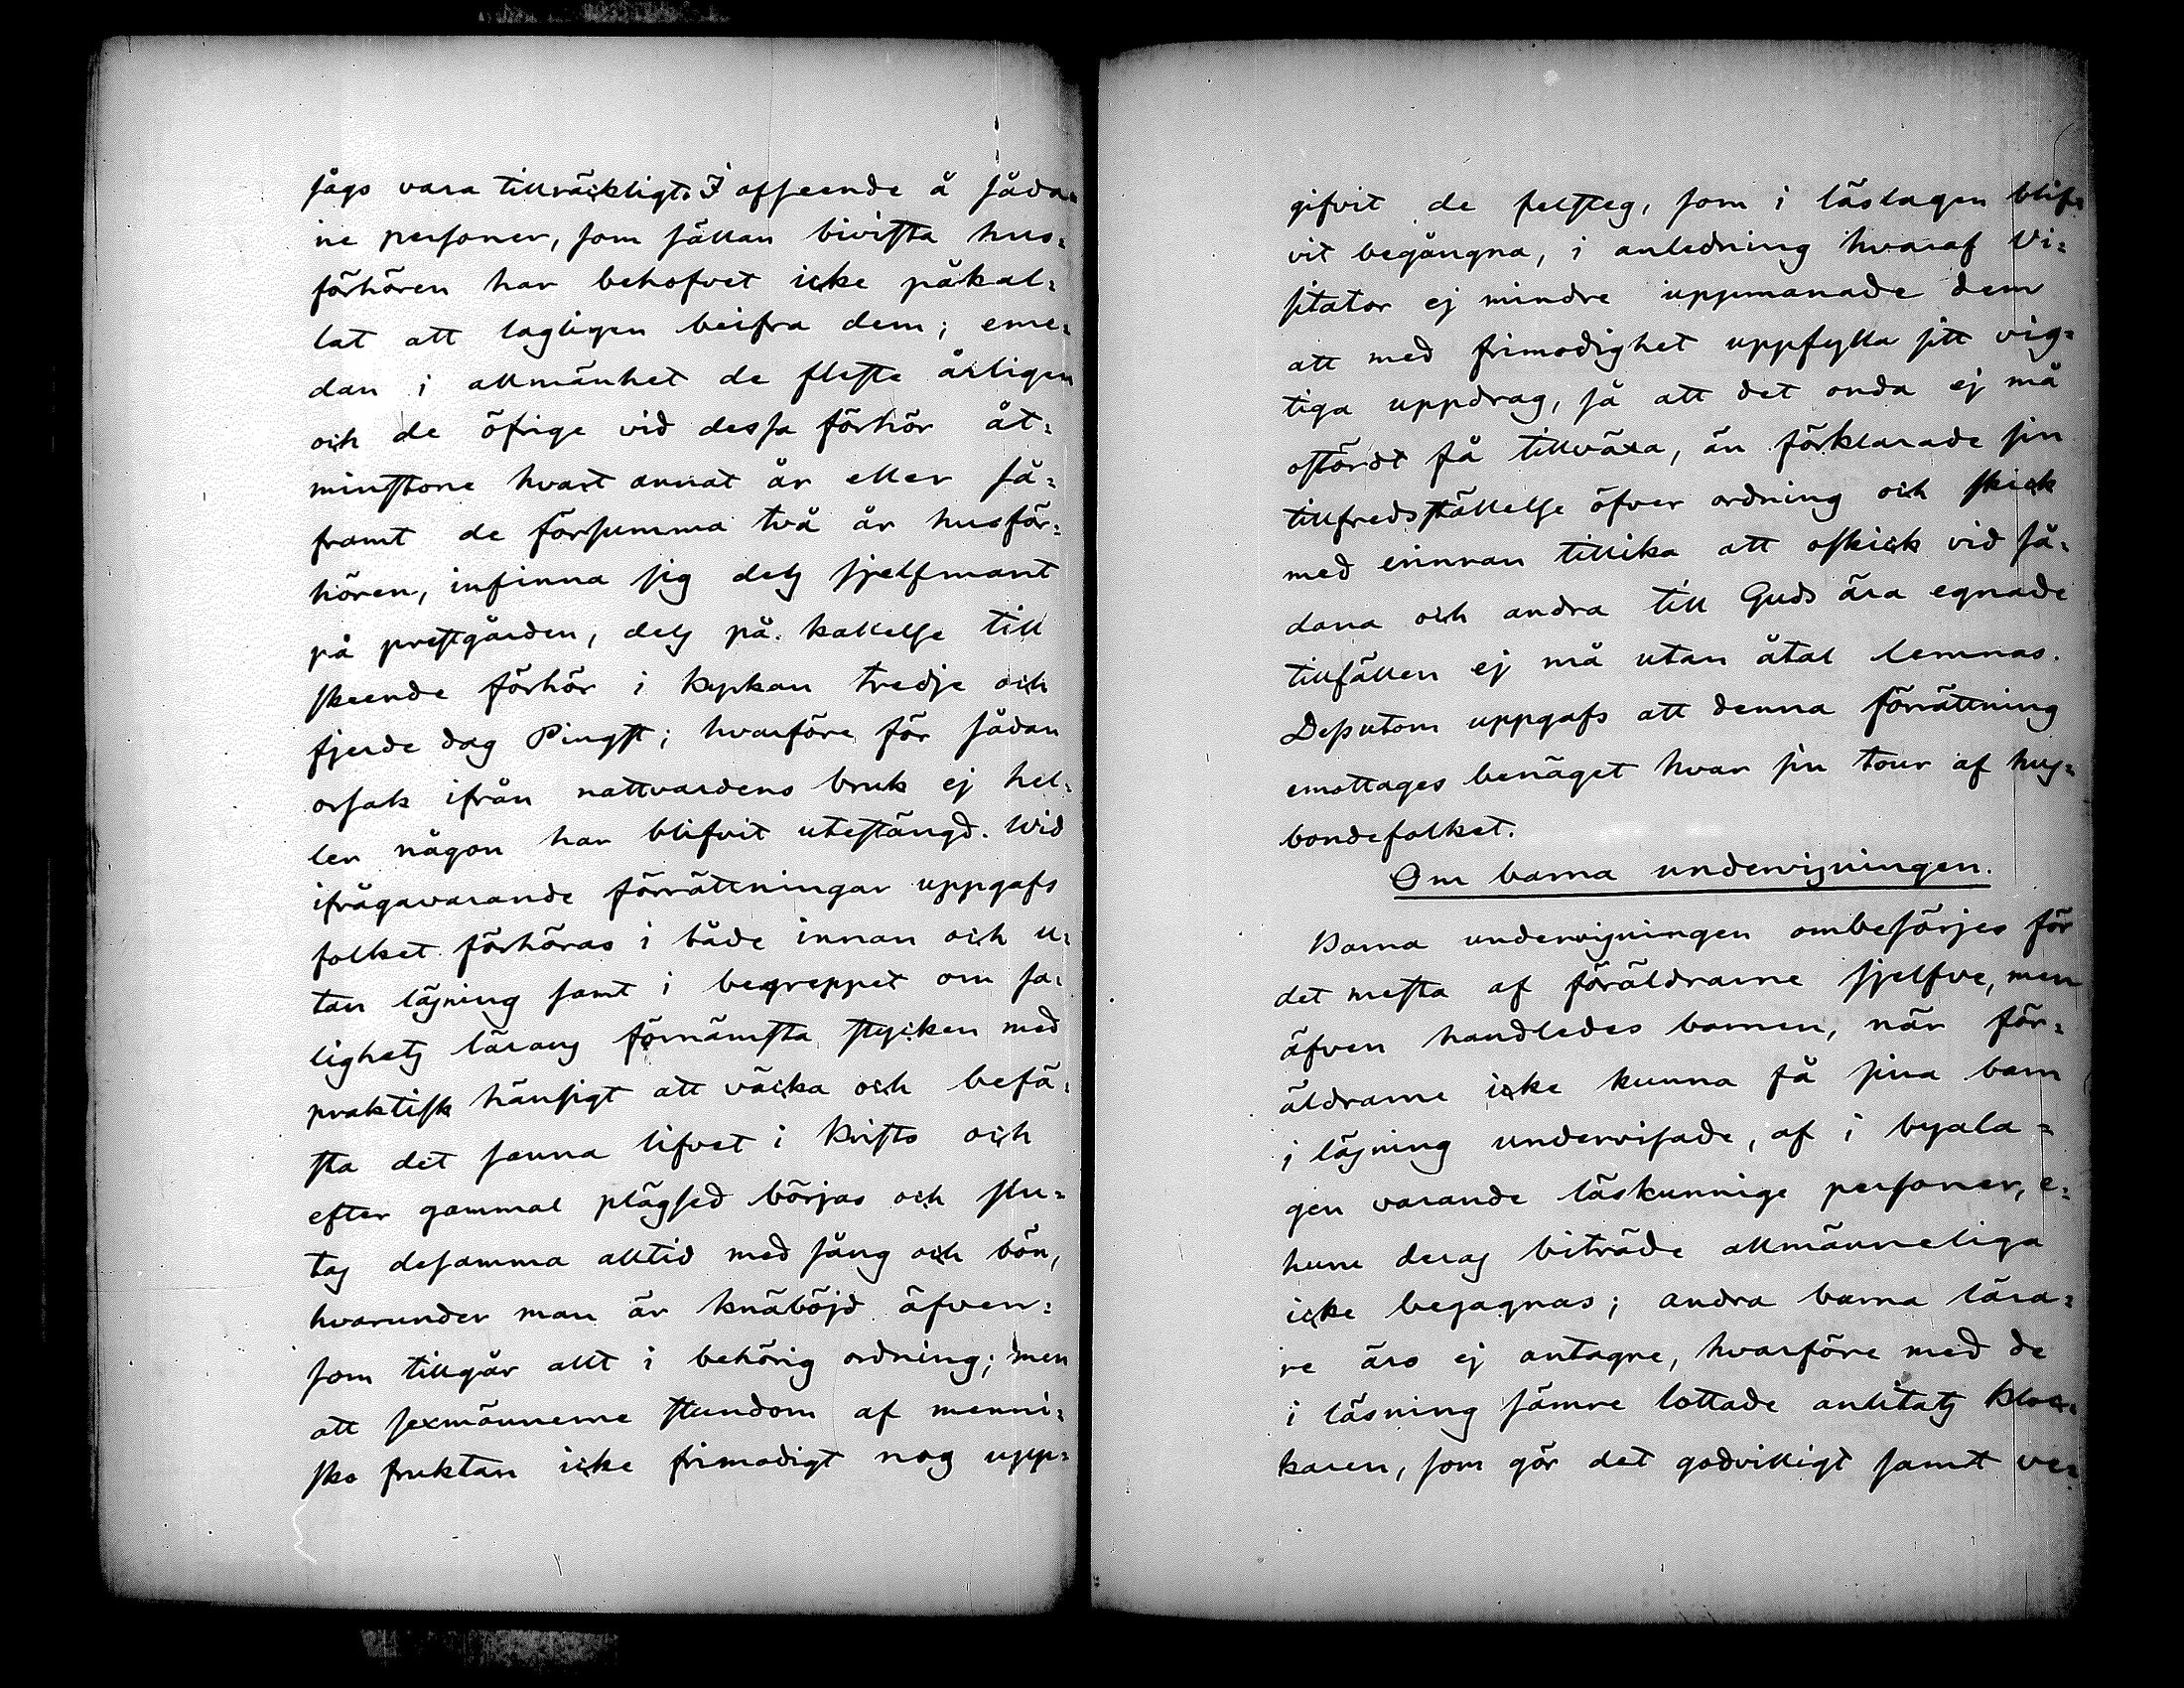 sågs vara tillräckligt. I afseende å såda=
ne personer, som sällan bivista hus=
förhören har behofvet icke påkal=
lat att lagligen beifra dem; eme=
dan i allmänhet de fleste årligen
och de öfrige vid dessa förhör åt=
minstone hvart annat år eller så=
framt de försumma två år husför=
hören, infinna sig dels sjelfmant
på prestgården, dels på kallelse till
skeende förhör i kyrkan tredje och
fjerde dag Pingst; hvarföre för sådan
orsak ifrån nattvardens bruk ej hel=
ler någon har blifvit utestängd. Wid
ifrågavarande förrättningar uppgafs
folket förhöras i både innan och u=
tan läsning samt i begreppet om sa=
lighets lärans förnämsta stycken med
praktisk hänsigt att väcka och befä=
sta det sanna lifvet i Kristo och
efter gammal plägsed börjas och slu=
tas desamma alltid med sång och bön,
hvarunder man är knäböjd äfven=
som tillgår allt i behörig ordning; men
att sexmännerne stundom af menni=
sko fruktan icke frimodigt nog upp=
gifvit de felsteg, som i läslagen blif=
vit begångna, i anledning hvaraf Vi=
sitator ej mindre uppmanade dem
att med frimodighet uppfylla sitt vig=
tiga uppdrag, så att det onda ej må
ostördt få tillväxa, än förklarade sin
tillfredsställelse öfver ordning och skick
med erinran tillika att oskick vid så=
dana och andra till Guds ära egnade
tillfällen ej må utan åtal lemnas.
Dessutom uppgafs att denna förrättning
emottages benäget hvar sin tour af hus=
bondefolket.
Om barna undervisningen.
Barna undervisningen ombesörjes för
det mesta af föräldrarne sjelfve, men
äfven handledes barnen, när för=
äldrarne icke kunna få sina barn
i läsning undervisade, af i byala=
gen varande läskunnige personer, e=
huru deras biträde allmänneliga
icke begagnas; andra barna lära=
re äro ej antagne, hvarföre med de
i läsning sämre lottade anlitats kloc=
karen, som gör det godvilligt samt ve=